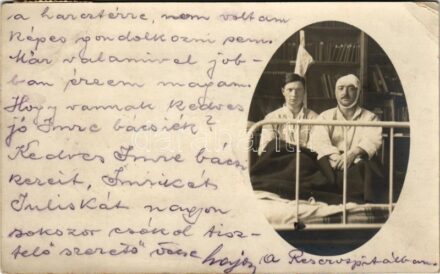 a harcztérre, nem voltam
képes gondolkozni sem.
Már valamivel job-
ban érzem magam.
Hogy vannak kedves
jó Imre bácsiék?
Kedves Imre bácsi
kezeit, Imrikét
Juliskát nagyon
sokszor csókol tisz-
telő szerető öcscse Lajos
A Reservspitálban.
darabanth